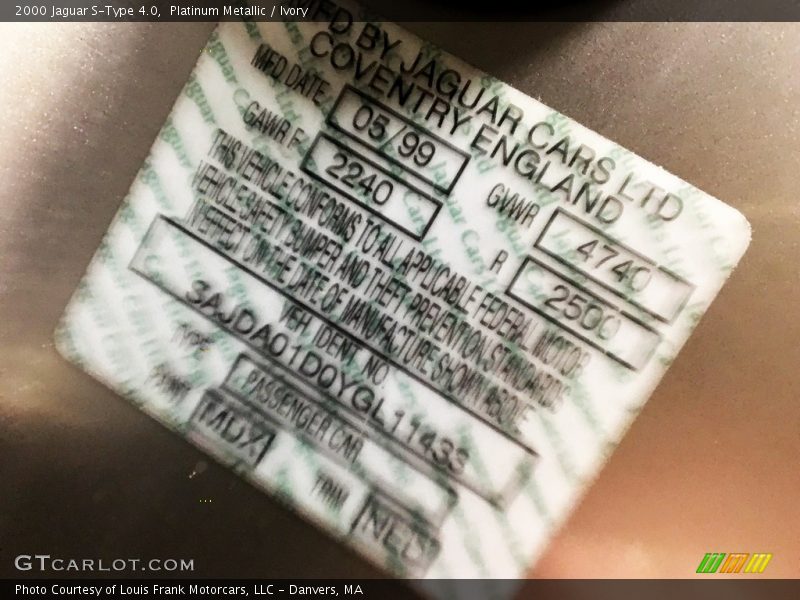 2000 Jaguar S-Type 4.0,  Platinum Metallic / Ivory
MFD BY JAGUAR CARS LTD
COVENTRY ENGLAND
MFD DATE 05/99 GVWR 4740
GAWR F 2240 R 2500
THIS VEHICLE CONFORMS TO ALL APPLICABLE FEDERAL MOTOR
VEHICLE SAFETY BUMPER AND THEFT PREVENTION STANDARDS
IN EFFECT ON THE DATE OF MANUFACTURE SHOWN ABOVE
VEH IDENT NO
3AJDA01D0YGL11433
TYPE PASSENGER CAR
PAINT MDX TRIM NED
GTCARLOT.COM
Photo Courtesy of Louis Frank Motorcars, LLC - Danvers, MA